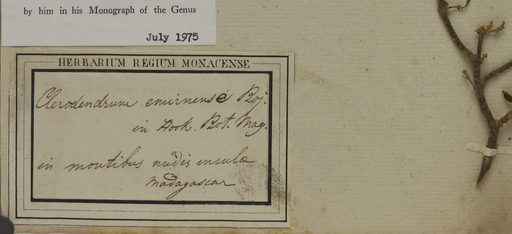 by him in his Monograph of the Genus
July 1975
HERBARIUM REGIUM MONACENSE
Clerodendrum emirnense Boj:
in Hook. Bot. Mag.
in montibus nudis insulæ
Madagascar